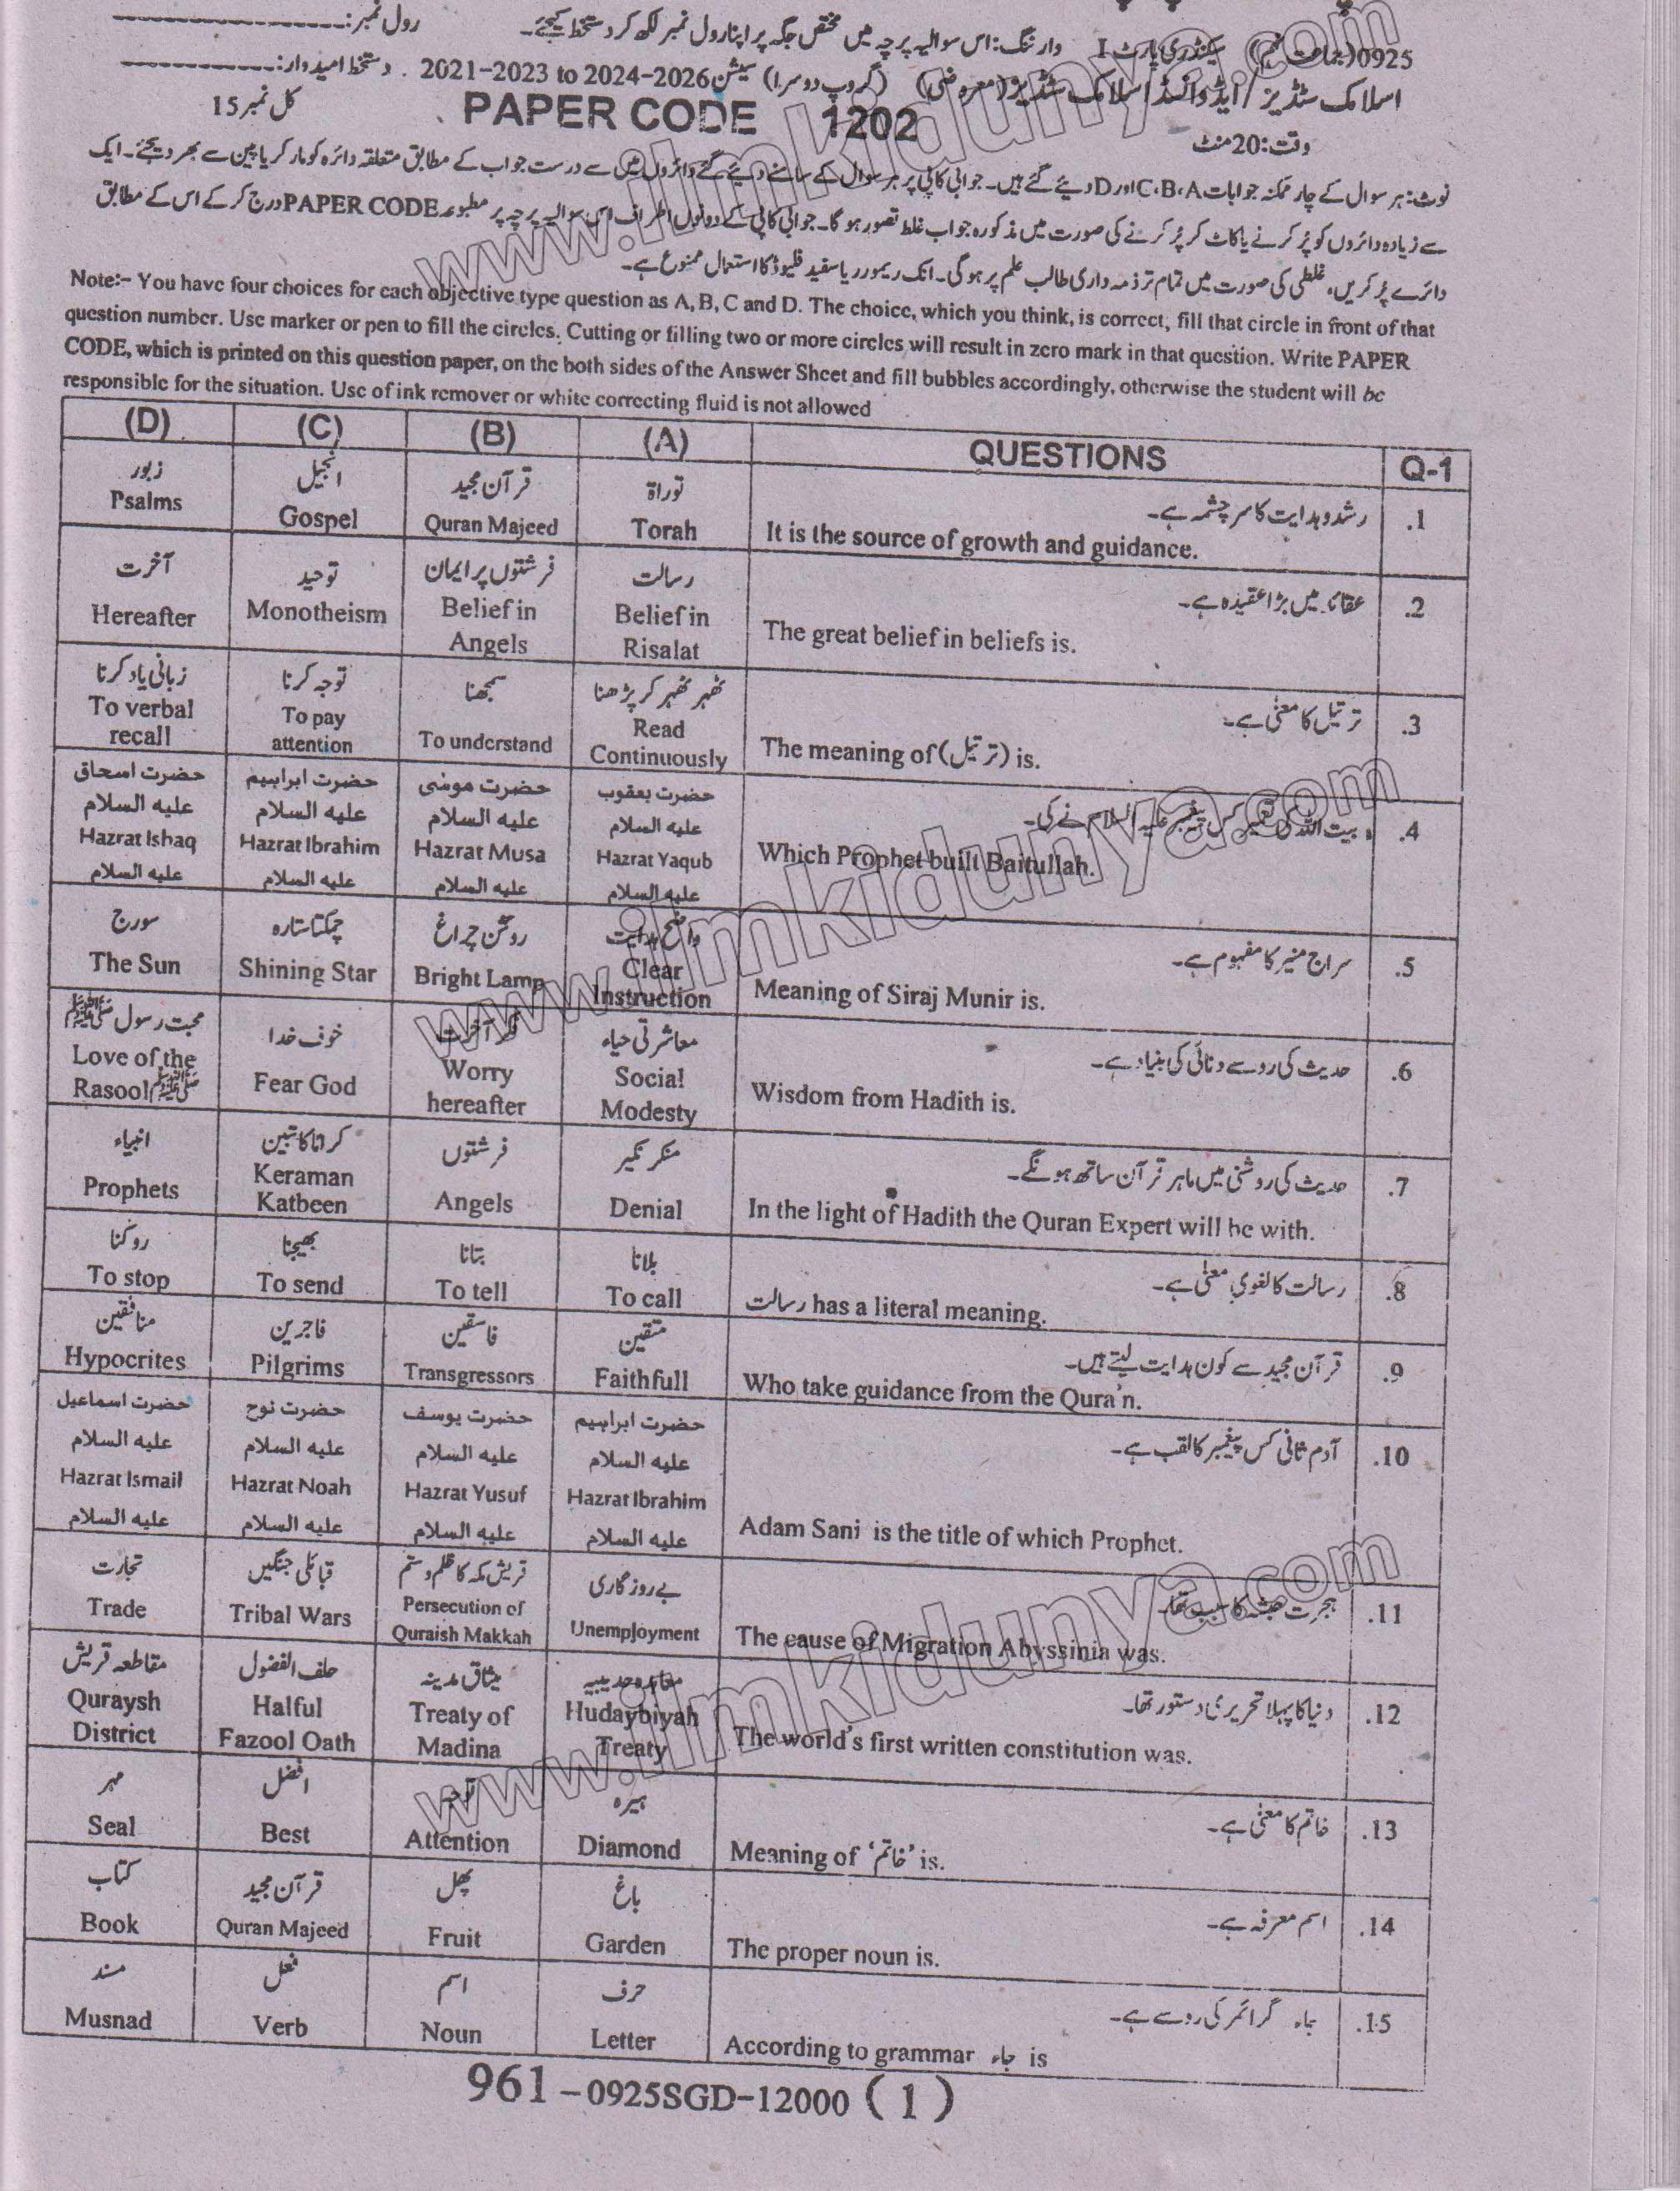 رول نمبر:
وارننگ: اس سوالیہ پرچہ میں مختص جگہ پر اپنا رول نمبر لکھ کر دستخط کیجئے۔
0925 (جماعت نہم) سیکنڈری پارٹ I
اسلامک سٹڈیز/ایڈوانسڈ اسلامک سٹڈیز (معروضی) (گروپ دوسرا) سیشن 2021-2023 to 2024-2026 دستخط امیدوار:
وقت: 20 منٹ PAPER CODE 1202 کل نمبر 15
نوٹ: ہر سوال کے چار ممکنہ جوابات A، B، C اور D دیئے گئے ہیں۔ جوابی کاپی پر ہر سوال کے سامنے دیئے گئے دائروں میں سے درست جواب کے مطابق متعلقہ دائرہ کو مارکر یا پین سے بھر دیجئے۔ ایک
سے زیادہ دائروں کو پُر کرنے یا کاٹ کر پُر کرنے کی صورت میں مذکورہ جواب غلط تصور ہو گا۔ جوابی کاپی کے دونوں اطراف اس سوالیہ پرچہ پر مطبوعہ PAPER CODE درج کر کے اس کے مطابق
دائرے پُر کریں، غلطی کی صورت میں تمام تر ذمہ داری طالب علم پر ہوگی۔ انک ریمورر یا سفید فلیوڈ کا استعمال ممنوع ہے۔
Note:- You have four choices for each objective type question as A, B, C and D. The choice, which you think, is correct, fill that circle in front of that
question number. Use marker or pen to fill the circles. Cutting or filling two or more circles will result in zero mark in that question. Write PAPER
CODE, which is printed on this question paper, on the both sides of the Answer Sheet and fill bubbles accordingly, otherwise the student will be
responsible for the situation. Use of ink remover or white correcting fluid is not allowed
(D) (C) (B) (A) QUESTIONS Q-1
زبور انجیل قرآن مجید توراۃ رشد و ہدایت کا سرچشمہ ہے۔ .1
Psalms Gospel Quran Majeed Torah It is the source of growth and guidance.
آخرت توحید فرشتوں پر ایمان رسالت عقائد میں بڑا عقیدہ ہے۔ .2
Hereafter Monotheism Belief in Belief in The great belief in beliefs is.
Angels Risalat
زبانی یاد کرنا توجہ کرنا سمجھنا ٹھہر ٹھہر کر پڑھنا ترتیل کا معنیٰ ہے۔ .3
To verbal To pay To understand Read The meaning of (ترتیل) is.
recall attention Continuously
حضرت اسحاق حضرت ابراہیم حضرت موسٰی حضرت یعقوب بیت اللہ کی تعمیر کس پیغمبر علیہ السلام نے کی۔ .4
علیہ السلام علیہ السلام علیہ السلام علیہ السلام
Hazrat Ishaq Hazrat Ibrahim Hazrat Musa Hazrat Yaqub Which Prophet built Baitullah.
علیہ السلام علیہ السلام علیہ السلام علیہ السلام
سورج چمکتا ستارہ روشن چراغ واضح ہدایت سراج منیر کا مفہوم ہے۔ .5
The Sun Shining Star Bright Lamp Clear Meaning of Siraj Munir is.
Instruction
محبت رسول ﷺ خوف خدا فکر آخرت معاشرتی حیاء حدیث کی رو سے دنائی کی بنیاد ہے۔ .6
Love of the Fear God Worry Social Wisdom from Hadith is.
Rasool ﷺ hereafter Modesty
انبیاء کراماً کاتبین فرشتوں منکر نکیر حدیث کی روشنی میں ماہر قرآن ساتھ ہونگے۔ .7
Prophets Keraman Angels Denial In the light of Hadith the Quran Expert will be with.
Katbeen
روکنا بھیجنا بتانا بلانا رسالت کا لغوی معنیٰ ہے۔ .8
To stop To send To tell To call رسالت has a literal meaning.
منافقین فاجرین فاسقین متقین قرآن مجید سے کون ہدایت لیتے ہیں۔ .9
Hypocrites Pilgrims Transgressors Faithfull Who take guidance from the Qura'n.
حضرت اسماعیل حضرت نوح حضرت یوسف حضرت ابراہیم آدم ثانی کس پیغمبر کا لقب ہے۔ .10
علیہ السلام علیہ السلام علیہ السلام علیہ السلام
Hazrat Ismail Hazrat Noah Hazrat Yusuf Hazrat Ibrahim Adam Sani is the title of which Prophet.
علیہ السلام علیہ السلام علیہ السلام علیہ السلام
تجارت قبائلی جنگیں قریش مکہ کا ظلم و ستم بے روزگاری ہجرت حبشہ کا سبب تھا۔ .11
Trade Tribal Wars Persecution of Unemployment The cause of Migration Abyssinia was.
Quraish Makkah
مقاطعہ قریش حلف الفضول میثاق مدینہ معاہدہ حدیبیہ دنیا کا پہلا تحریری دستور تھا۔ .12
Quraysh Halful Treaty of Hudaybiyah The world's first written constitution was.
District Fazool Oath Madina Treaty
مہر افضل توجہ ہیرہ خاتم کا معنیٰ ہے۔ .13
Seal Best Attention Diamond Meaning of 'خاتم' is.
کتاب قرآن مجید پھل باغ اسم معرفہ ہے۔ .14
Book Quran Majeed Fruit Garden The proper noun is.
مسند فعل اسم حرف جاء گرائمر کی رو سے ہے۔ .15
Musnad Verb Noun Letter According to grammar جاء is
961-0925SGD-12000 (1)
www.ilmkidunya.com
www.ilmkidunya.com
www.ilmkidunya.com